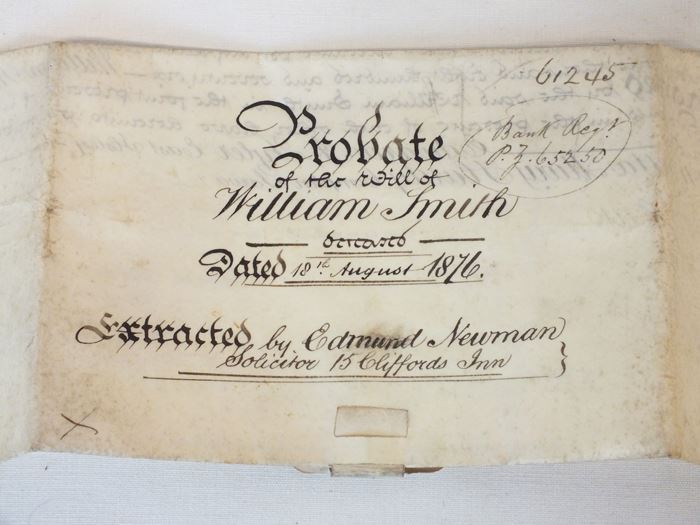 61245
Bank Regr.
P. 7. 65250
Probate
of the Will of
William Smith
deceased
Dated 18th August 1876.
Extracted by Edmund Newman
Solicitor 15 Cliffords Inn